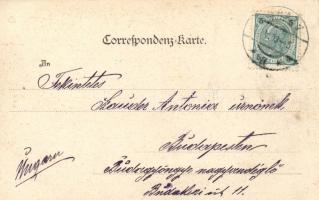 Correspondenz-Karte.
An
Tekintetes
Lauder Antonia úrnőnek
Budapesten
Budagyöngye nagyvendéglő
Budakeszi út 11.
Ungarn